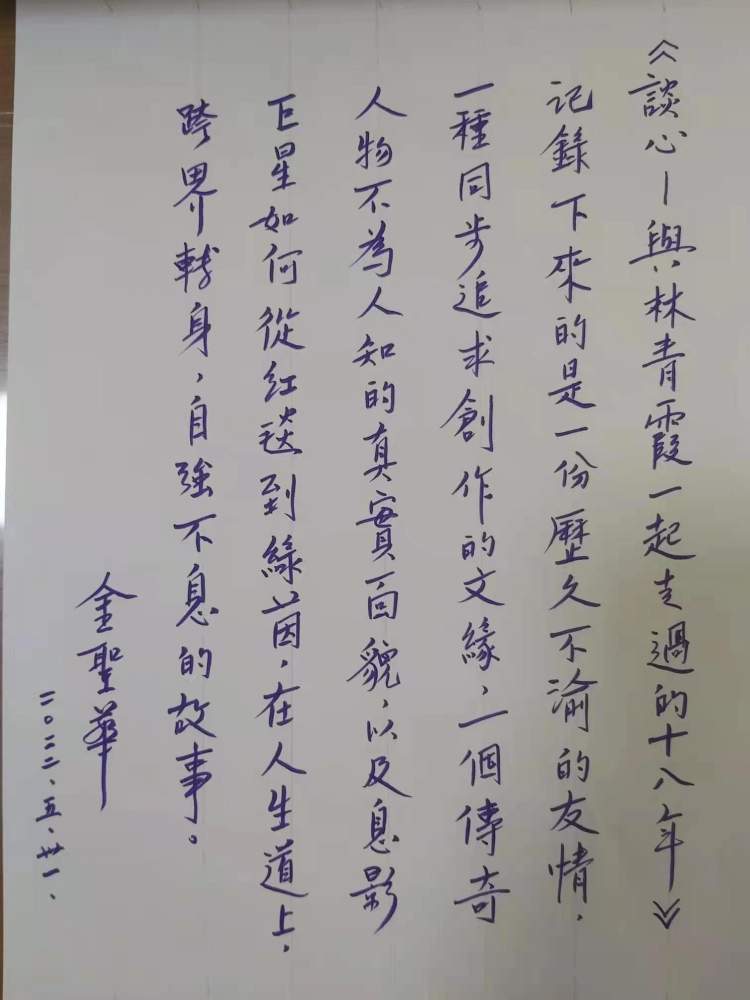 《談心—與林青霞一起走過的十八年》
記錄下來的是一份歷久不渝的友情,
一種同步追求創作的文緣,一個傳奇
人物不為人知的真實面貌,以及息影
巨星如何從紅毯到綠茵,在人生道上,
跨界轉身,自強不息的故事。
金聖華
二〇二二、五、卅一、